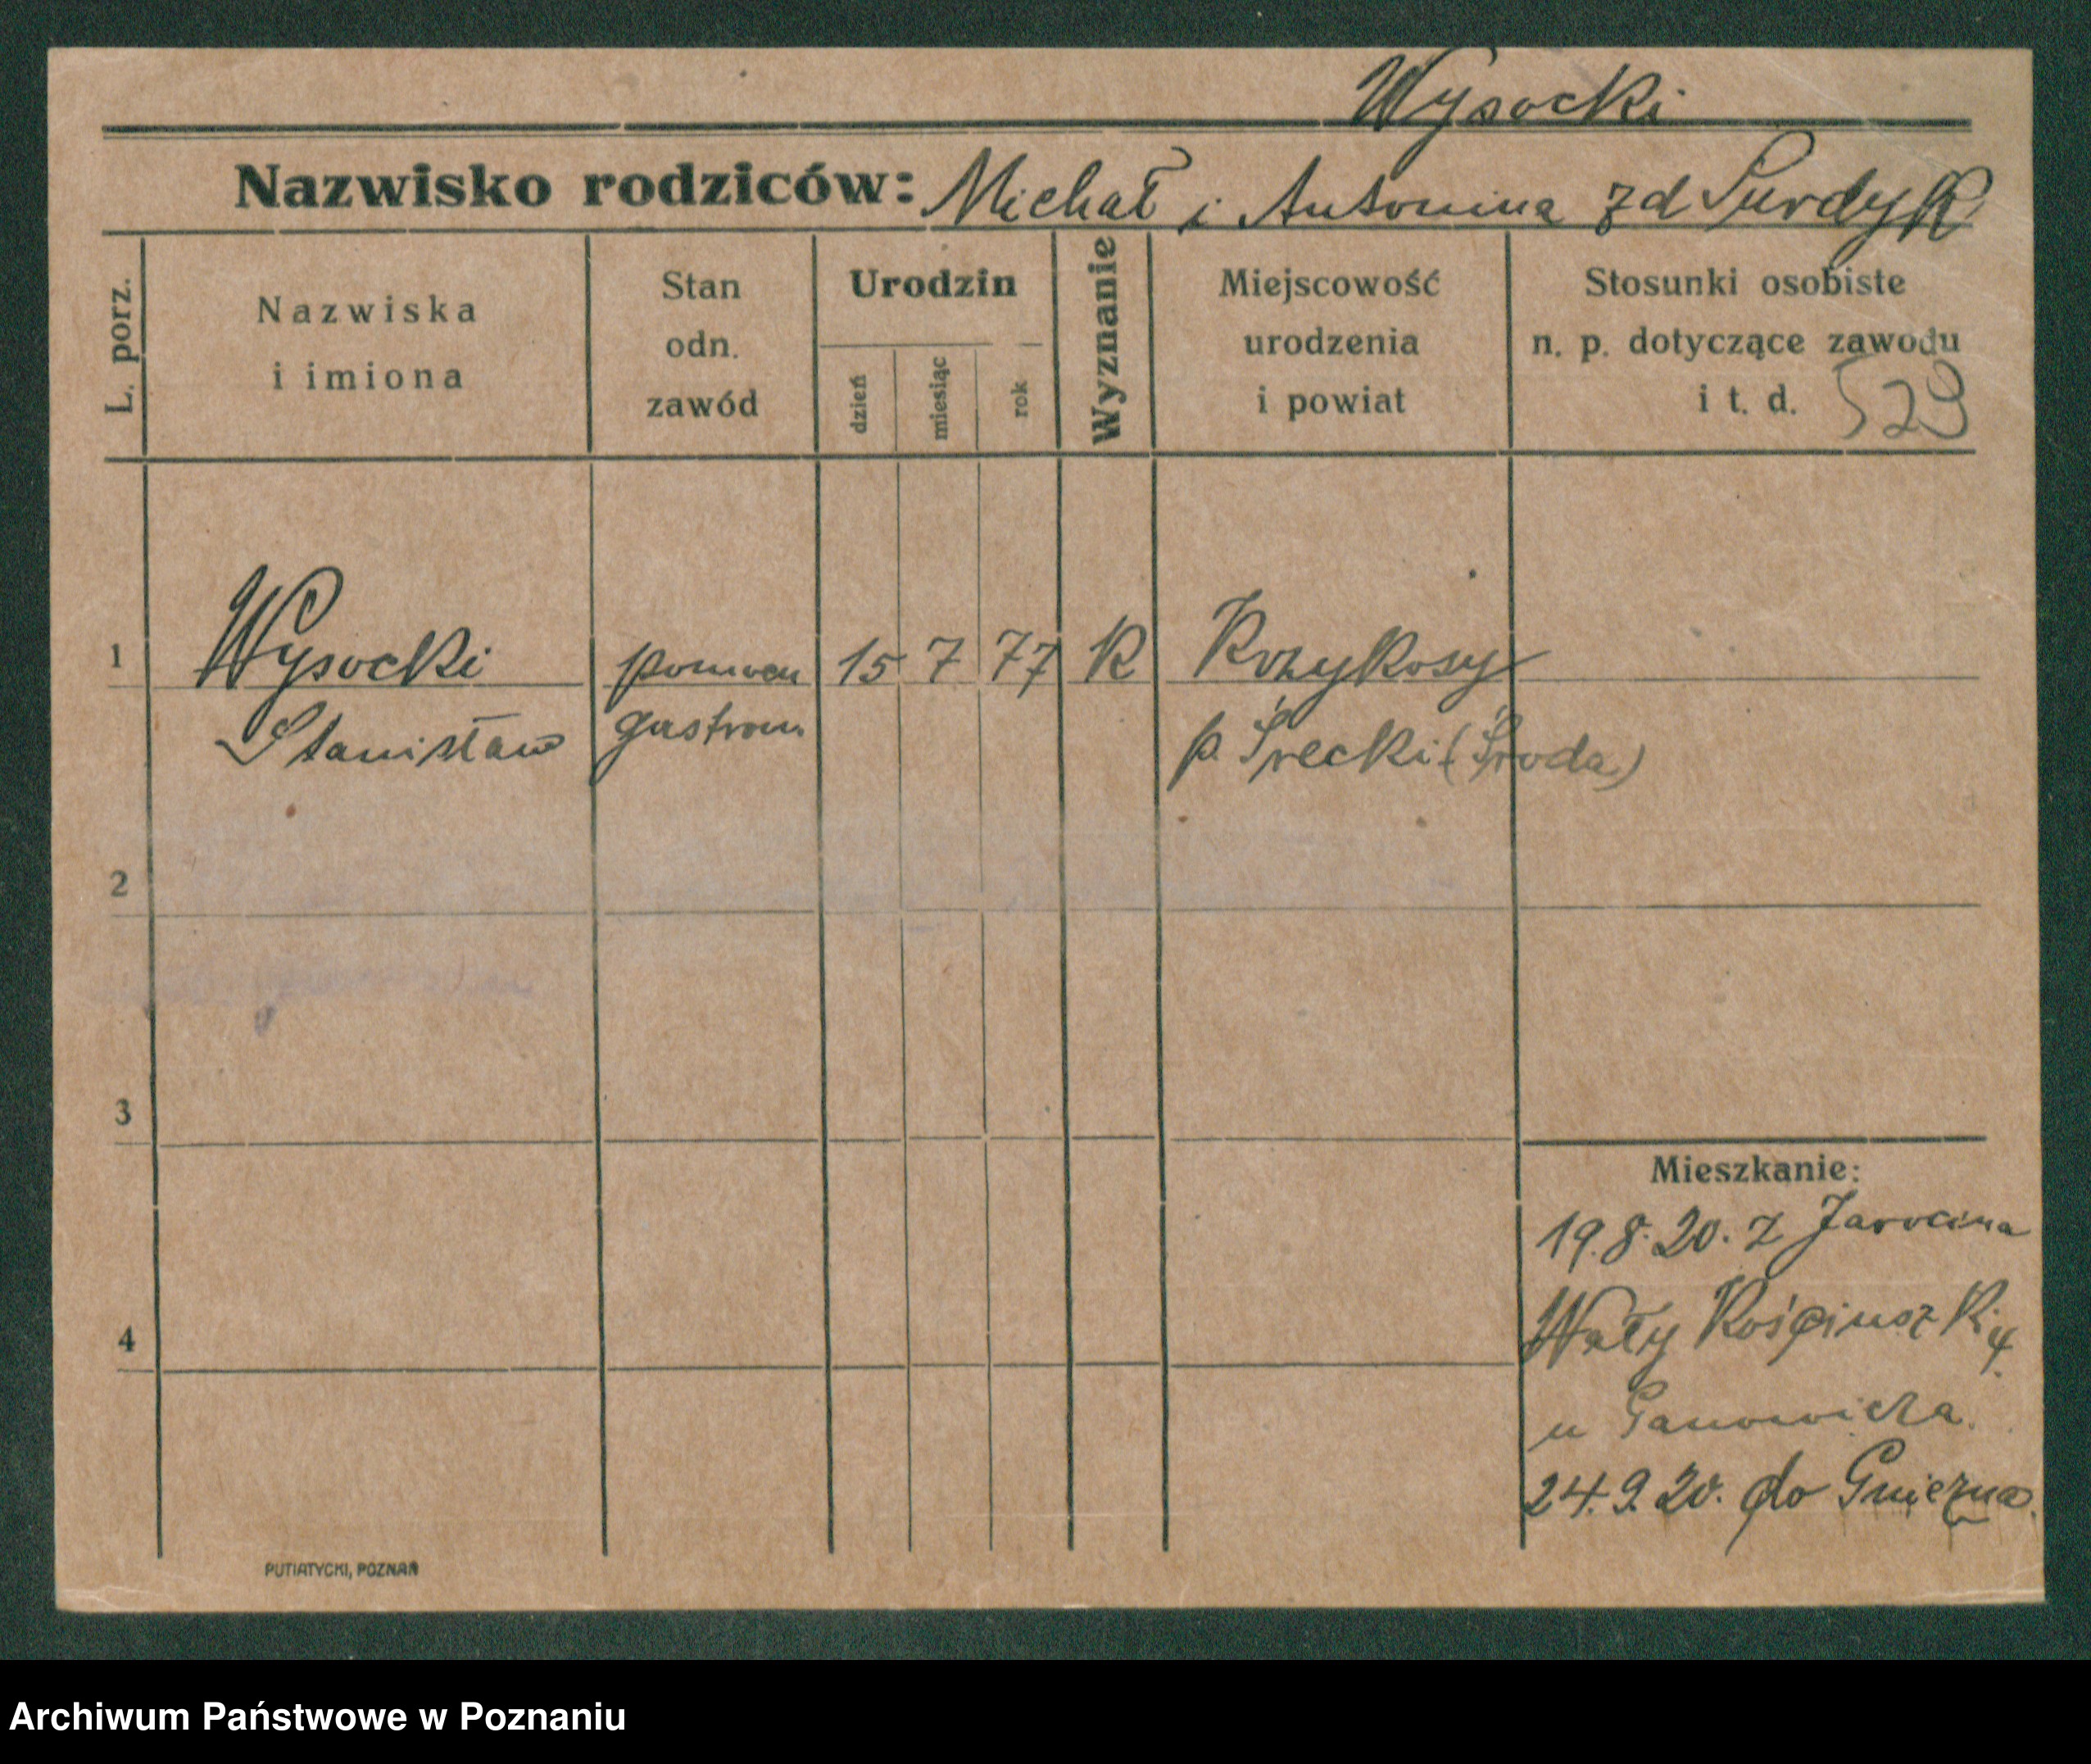 Wysocki
Nazwisko rodziców: Michał i Antonina zd Surdyk
L. porz.
Nazwiska
i imiona
Stan
odn.
zawód
Urodzin
dzień
miesiąc
rok
Wyznanie
Miejscowość
urodzenia
i powiat
Stosunki osobiste
n. p. dotyczące zawodu
i t. d. 529
1 Wysocki pomocn 15 7 77 K Krzykosy
Stanisław gastron. p. Śrecki (Środa)
2
3
Mieszkanie:
19.8.20. z Jarocina
Wały Kościuszki 4
4
u Ganowicza.
24.9.20. do Gniezna.
PUTIATYCKI, POZNAŃ
Archiwum Państwowe w Poznaniu